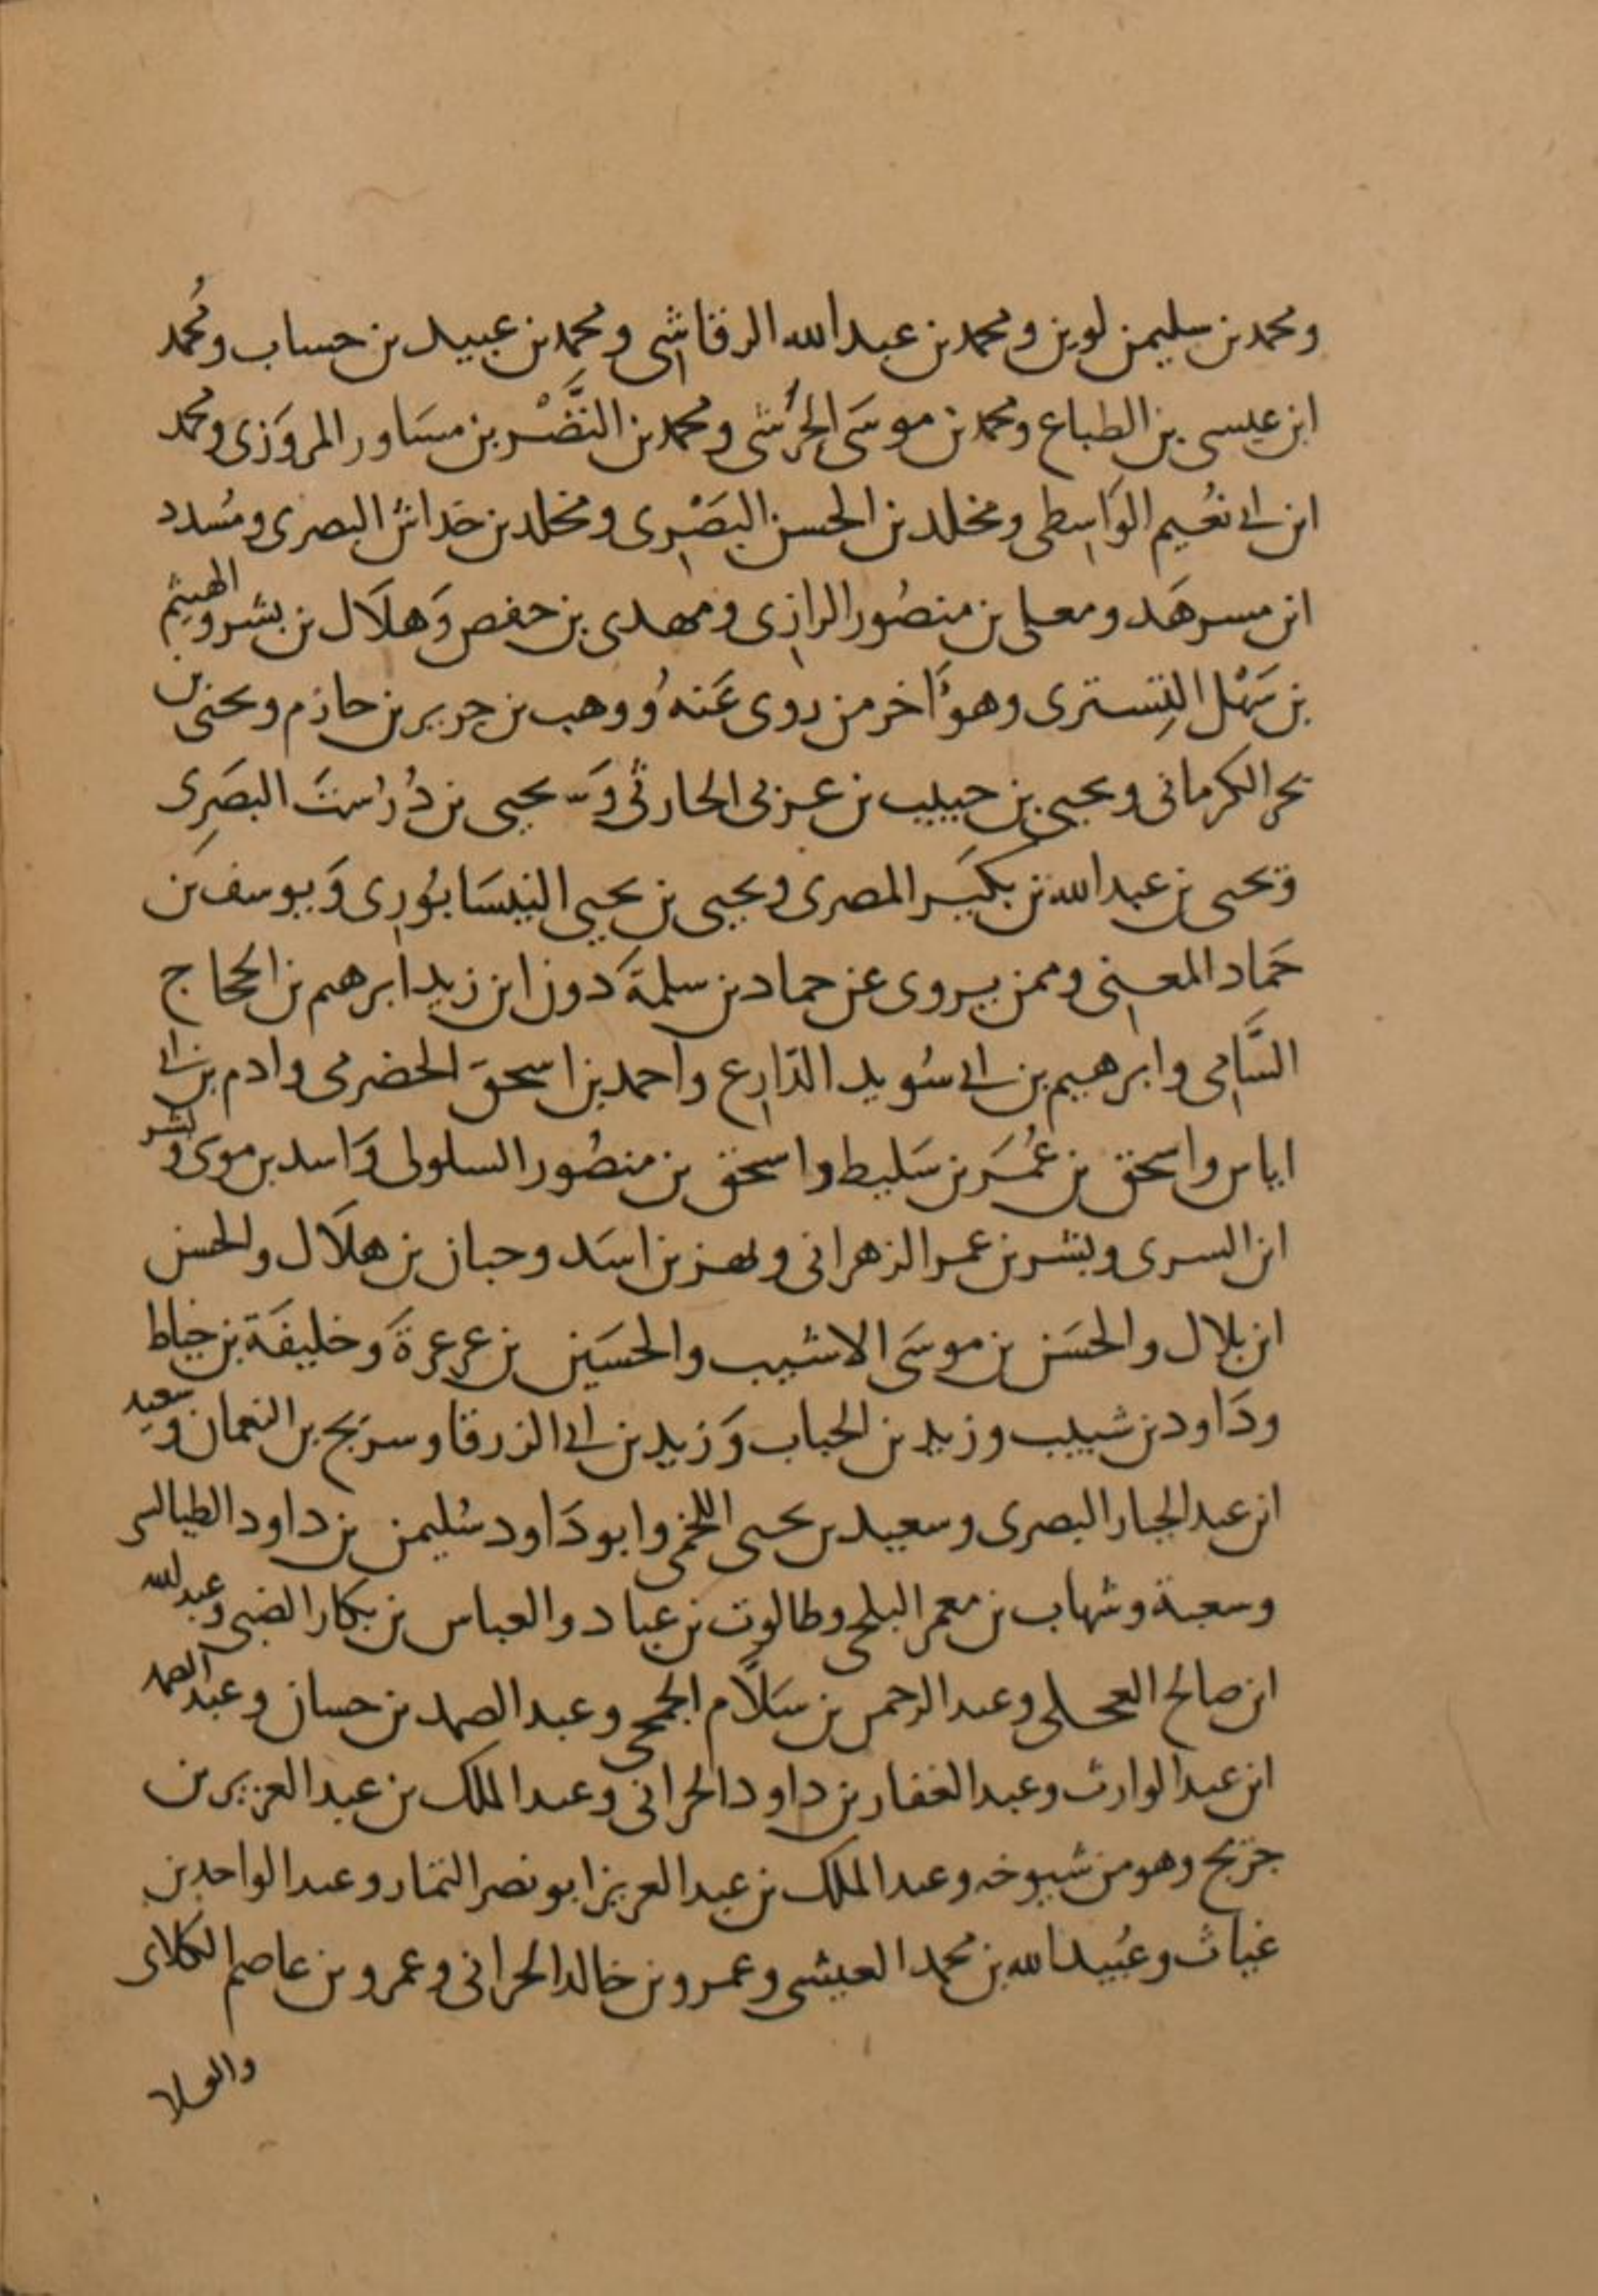 ومحمد بن سليمن لوين ومحمد بن عبد الله الرقاشي ومحمد بن عبيد بن حساب ومُحمد
ابن عيسى بن الطباع ومحمد بن موسَى الحَرَشي ومحمد بن النَّضْر بن مسَاور المروَزي ومحمد
ابن ابي نُعَيم الوَاسِطي ومخلد بن الحسن البَصْرِي ومخلد بن خداش البصري ومُسدد
ابن مسرهَد ومعلى بن منصُور الرازِي ومهدي بن حفص وَهلَال بن بشر والهيثم
بن سَهْل التِستري وهو آخر من روى عَنهُ ووهب بن جرير بن حازم ويحيى بن
بحر الكرماني ويحيى بن حبيب بن عربي الحارثي وَيحيى بن دُرُستَ البصَرِي
ويحيى بن عبد الله بن بكَير المصري ويحيى بن يحيى النيسَابُورِي وَيوسف بن
حَماد المعنِي وممن يروى عن حماد بن سلمَة دون ابن زيد ابرهيم بن الحجاج
السَّامِي وابرهيم بن ابي سُويد الذّارِع واحمد بن اسحقَ الحضرمي وادم بن ابي
اياس واسحق بن عُمَر بن سَليط واسحق بن منصُور السلولي وَاسد بن موسَى وبشر
ابن السري وبشر بن عمر الزهراني وبهز بن اسَد وحبان بن هلَال والحسن
ابن بلال والحسَن بن موسَى الاشيب والحسَين بن عرعرةَ وخليفَة بن خياط
ودَاود بن شبيب وزيد بن الحباب وَزيد بن ابي الزرقا وسريج بن النعمان وسعيد
ابن عبد الجبار البصري وسعيد بن يحيى اللخمي وابو دَاود سُليمن بن داود الطيالسي
وسعبة وشهاب بن معمر البلخي وطالوت بن عباد والعباس بن بكار الضبي وعبد الله
ابن صالح العجلي وعبد الرحمن بن سَلَّام الجمحي وعبد الصمد بن حسان وعبد الصمد
ابن عبد الوارث وعبد الغفار بن داود الحراني وعبد الملك بن عبد العزيز بن
جريج وهو من شيوخه وعبد الملك بن عبد العزيز ابو نصر التمار وعبد الواحد بن
غياث وعُبيد الله بن محمد العيشي وعمرو بن خالد الحراني وعمرو بن عاصم الكلابي
والعلا